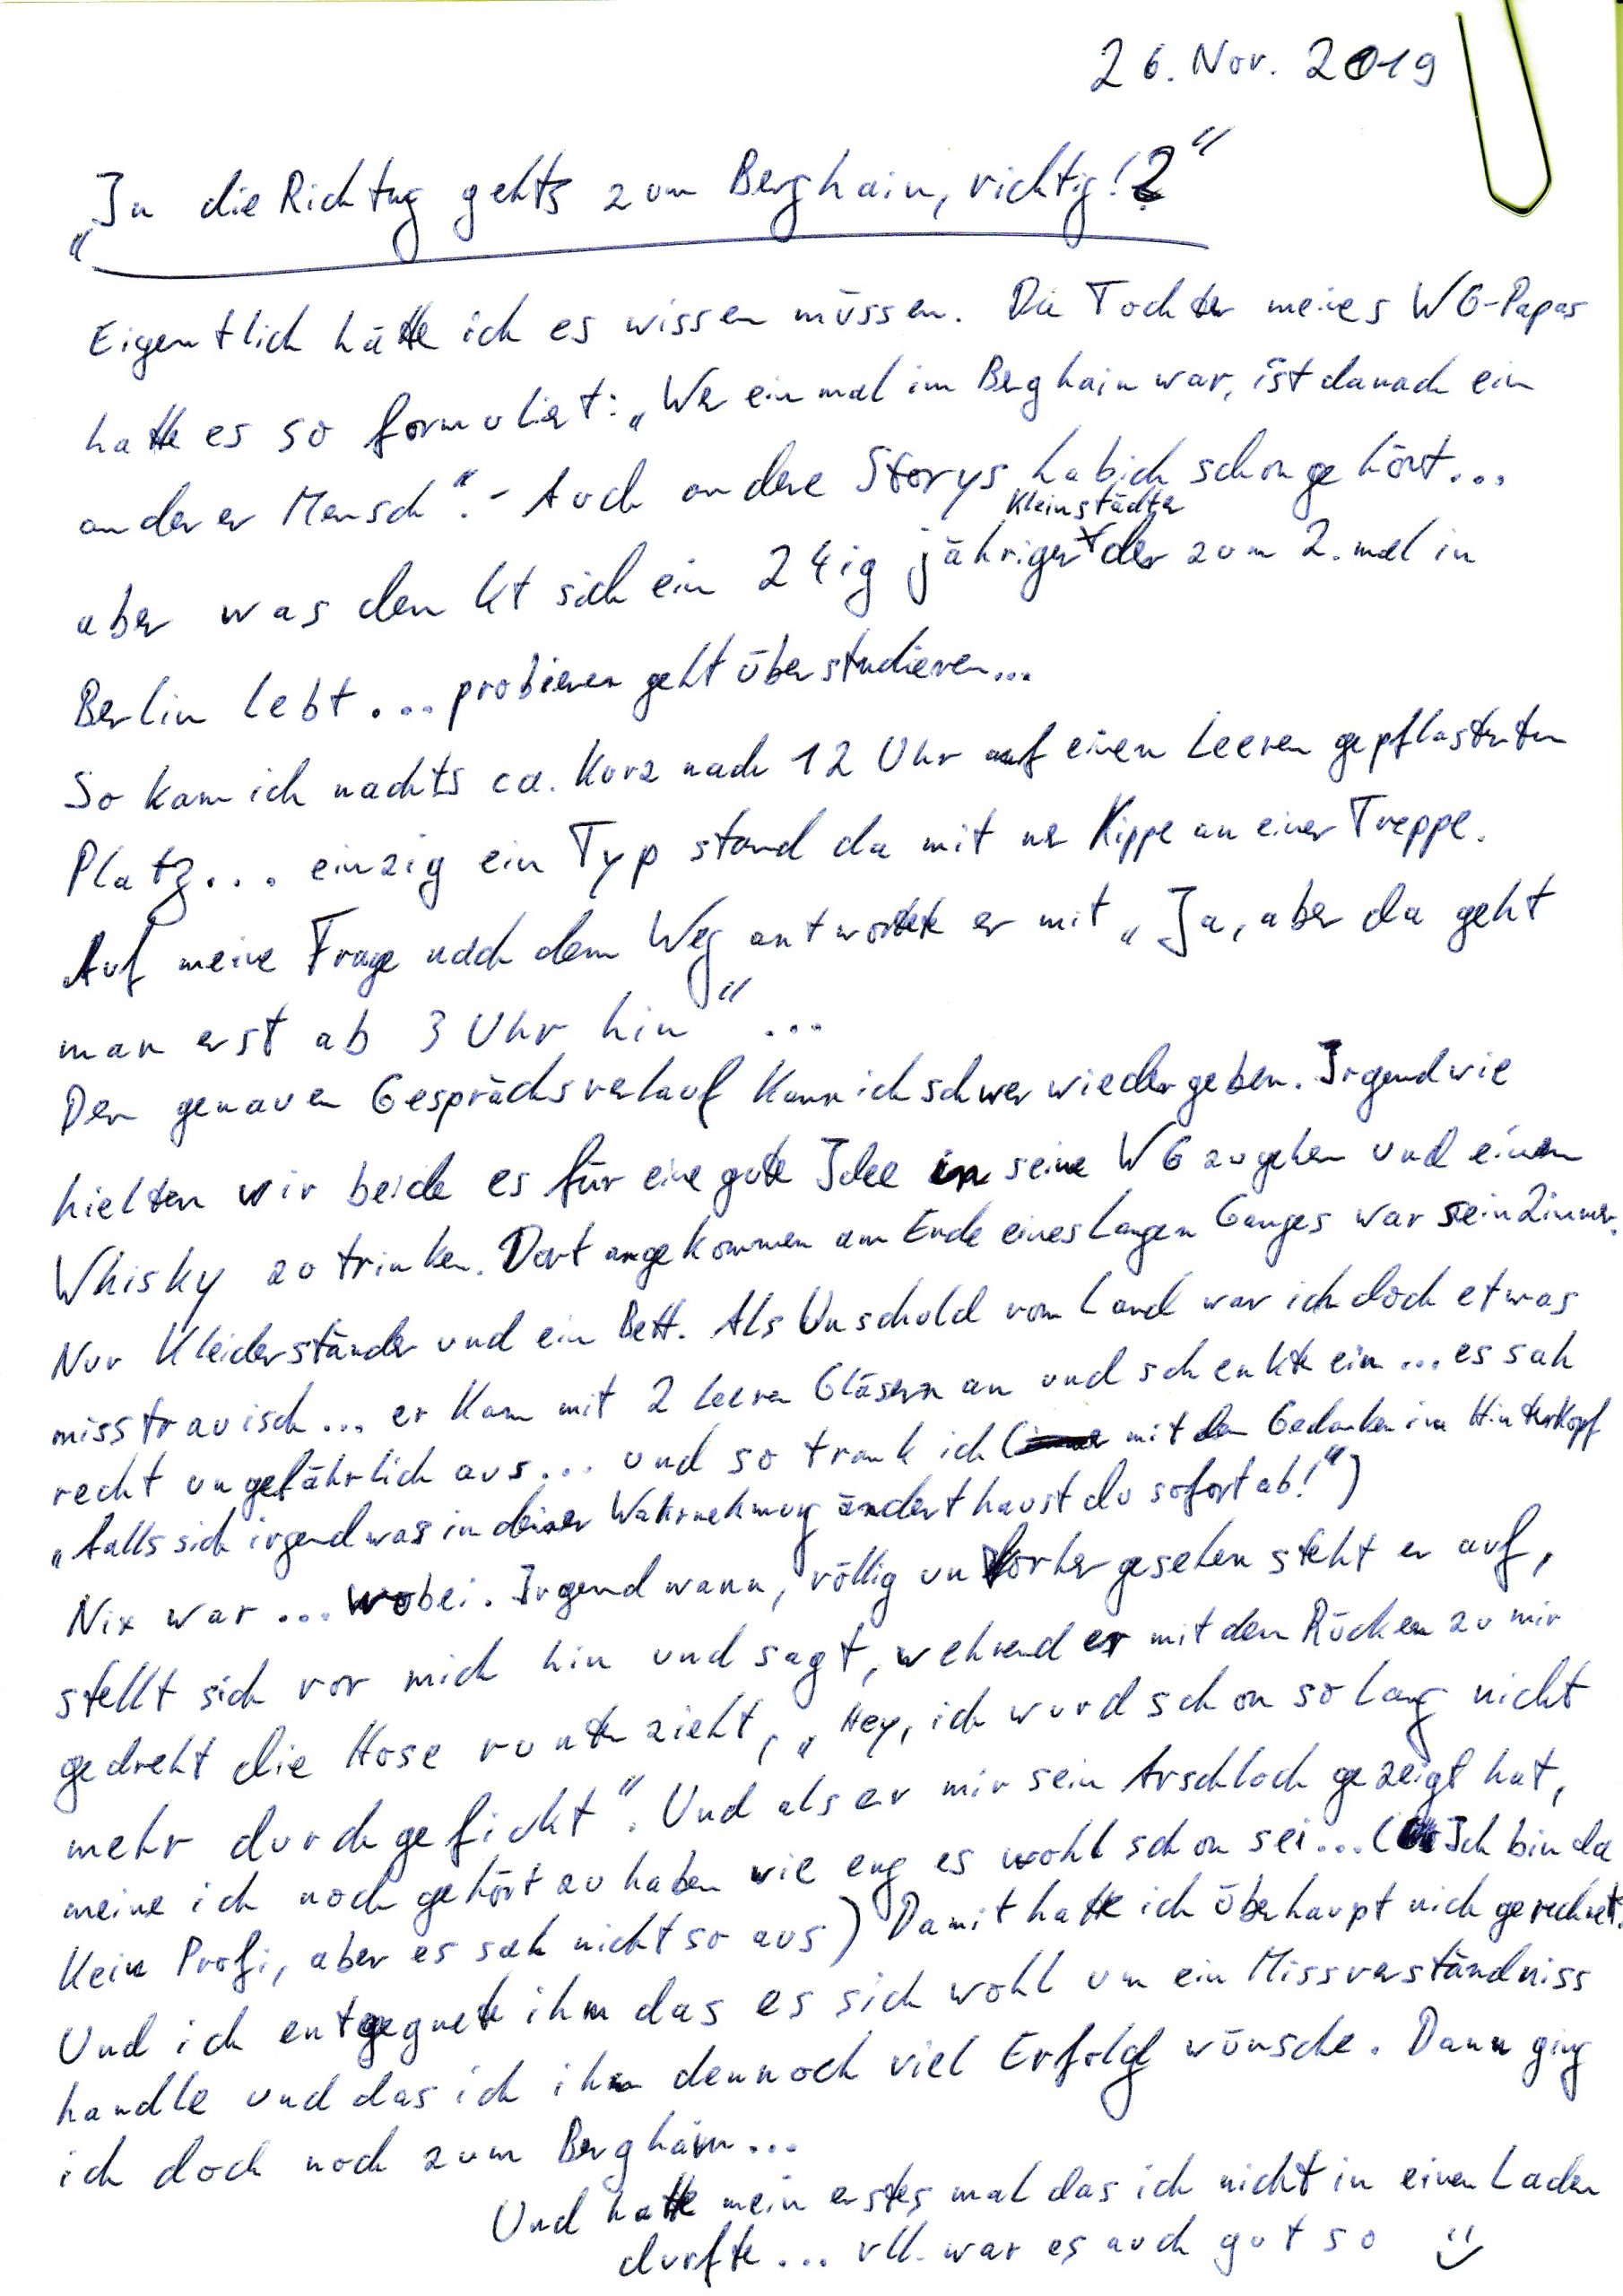 26. Nov. 2019
„In die Richtug gehts zum Berghain, richtig!?"
Eigentlich hätte ich es wissen müssen. Die Tochter meines WG-Papas
hatte es so formuliert: „Wer einmal im Berghain war, ist danach ein
anderer Mensch". - Auch andere Storys hab ich schon gehört...
Kleinstädter
aber was denkt sich ein 24ig jähriger der zum 2. mal in
Berlin lebt... probieren geht über studieren...
So kam ich nachts ca. kurz nach 12 Uhr auf einen leeren gepflasterten
Platz... einzig ein Typ stand da mit ner Kippe an einer Treppe.
Auf meine Frage nach dem Weg antwortete er mit „Ja, aber da geht
man erst ab 3 Uhr hin" ...
Den genauen Gesprächsverlauf kann ich schwer wiedergeben. Irgendwie
hielten wir beide es für eine gute Idee in seine WG zu gehen und einen
Whisky zu trinken. Dort angekommen am Ende eines langen Ganges war sein Zimmer.
Nur Kleiderständer und ein Bett. Als Unschuld vom Land war ich doch etwas
misstrauisch... er kam mit 2 leeren Gläsern an und schenkte ein... es sah
recht ungefährlich aus... und so trank ich ( mit dem Gedanken im Hinterkopf
„falls sich irgendwas in deiner Wahrnehmung ändert haust du sofort ab!")
Nix war... wobei. Irgendwann, völlig unvorhergesehen steht er auf,
stellt sich vor mich hin und sagt, wehrend er mit dem Rücken zu mir
gedreht die Hose runter zieht, „Hey, ich wurd schon so lang nicht
mehr durchgefickt". Und als er mir sein Arschloch gezeigt hat,
meine ich noch gehört zu haben wie eng es wohl schon sei... (Ich bin da
kein Profi, aber es sah nicht so aus) Damit hatte ich überhaupt nich gerechnet.
Und ich entgegnete ihm das es sich wohl um ein Missverständniss
handle und das ich ihm dennoch viel Erfolg wünsche. Dann ging
ich doch noch zum Berghain...
Und hatte mein erstes mal das ich nicht in einen Laden
durfte... vll. war es auch gut so :)